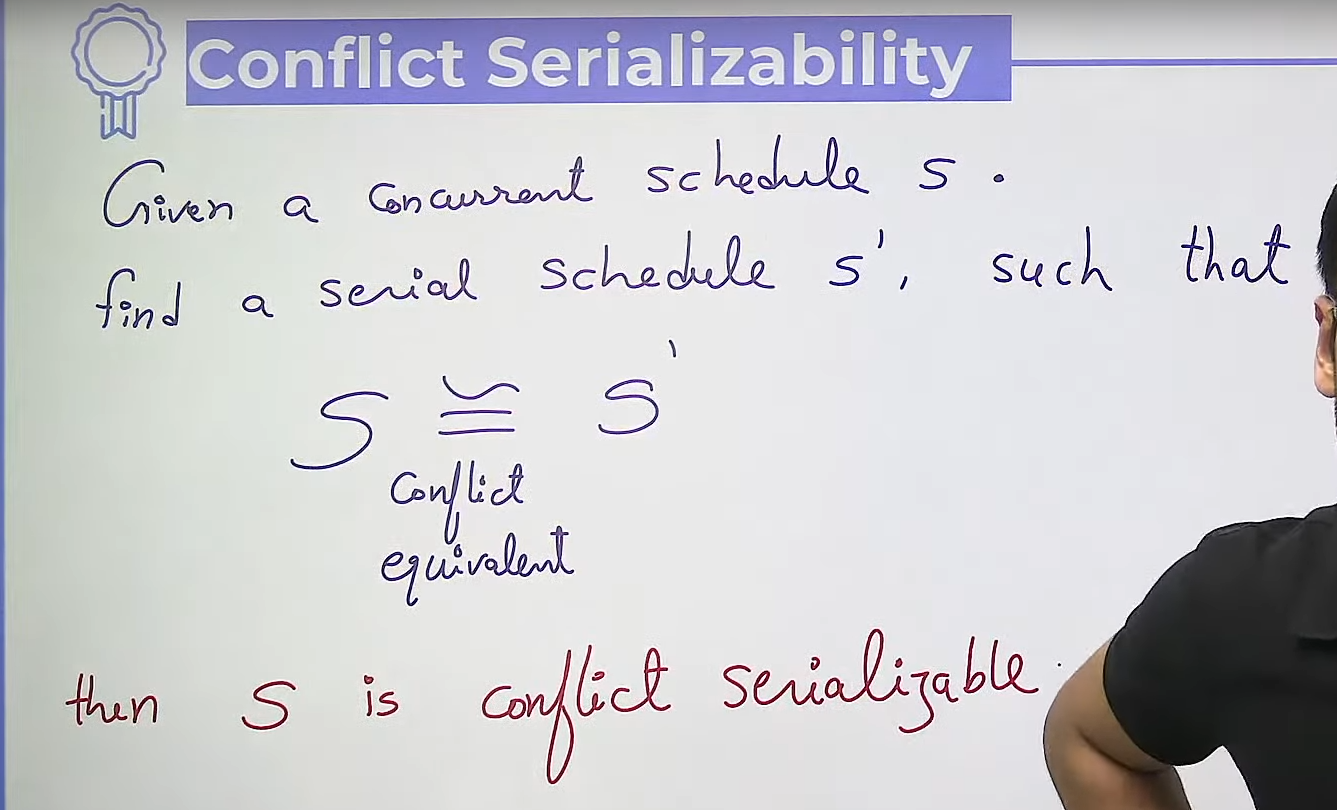 Conflict Serializability
Given a concurrent schedule S.
find a serial schedule S', such that
S ≅ S'
Conflict
equivalent
then S is conflict serializable.